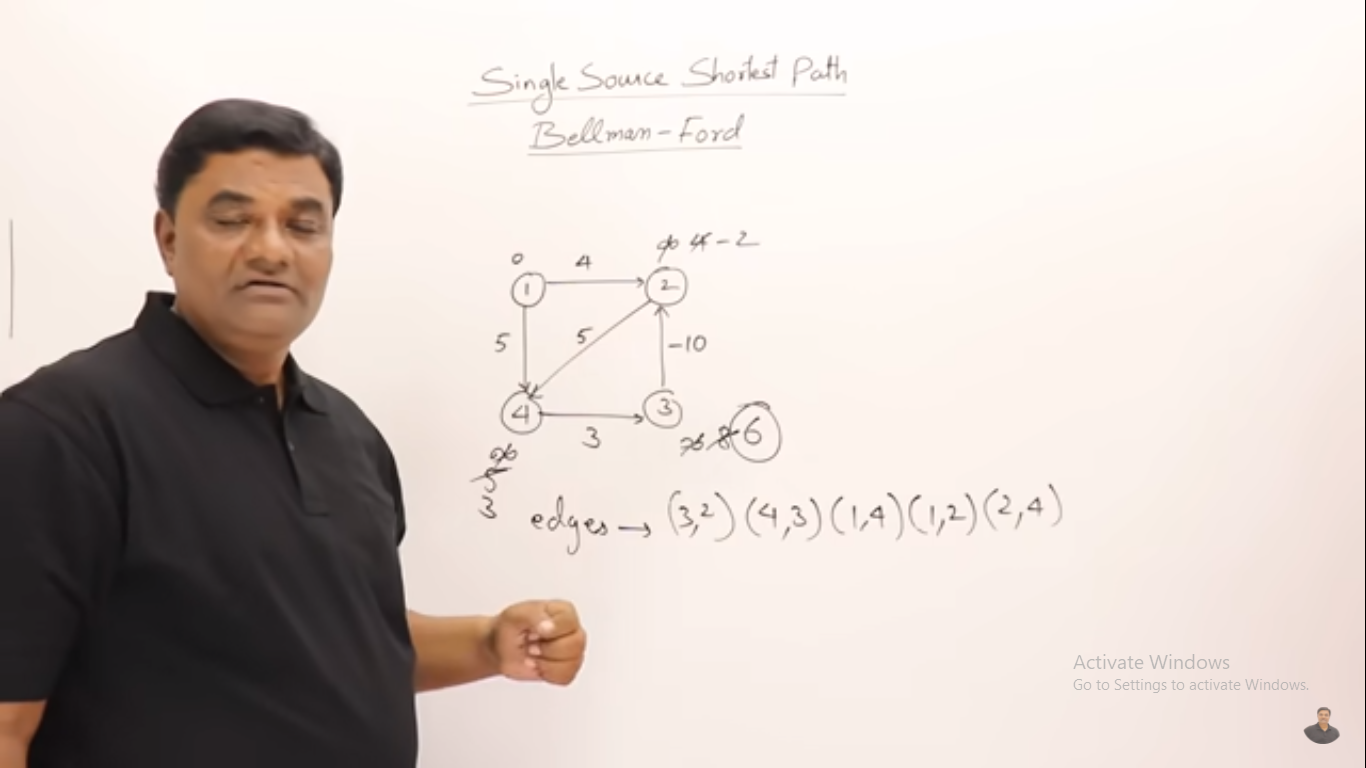 Single Source Shortest Path
Bellman-Ford
0 4 ∞ 4 -2
1 2
5 5 -10
4 3
3 ∞ 8 6
∞
5
3
edges → (3,2) (4,3) (1,4) (1,2) (2,4)
Activate Windows
Go to Settings to activate Windows.